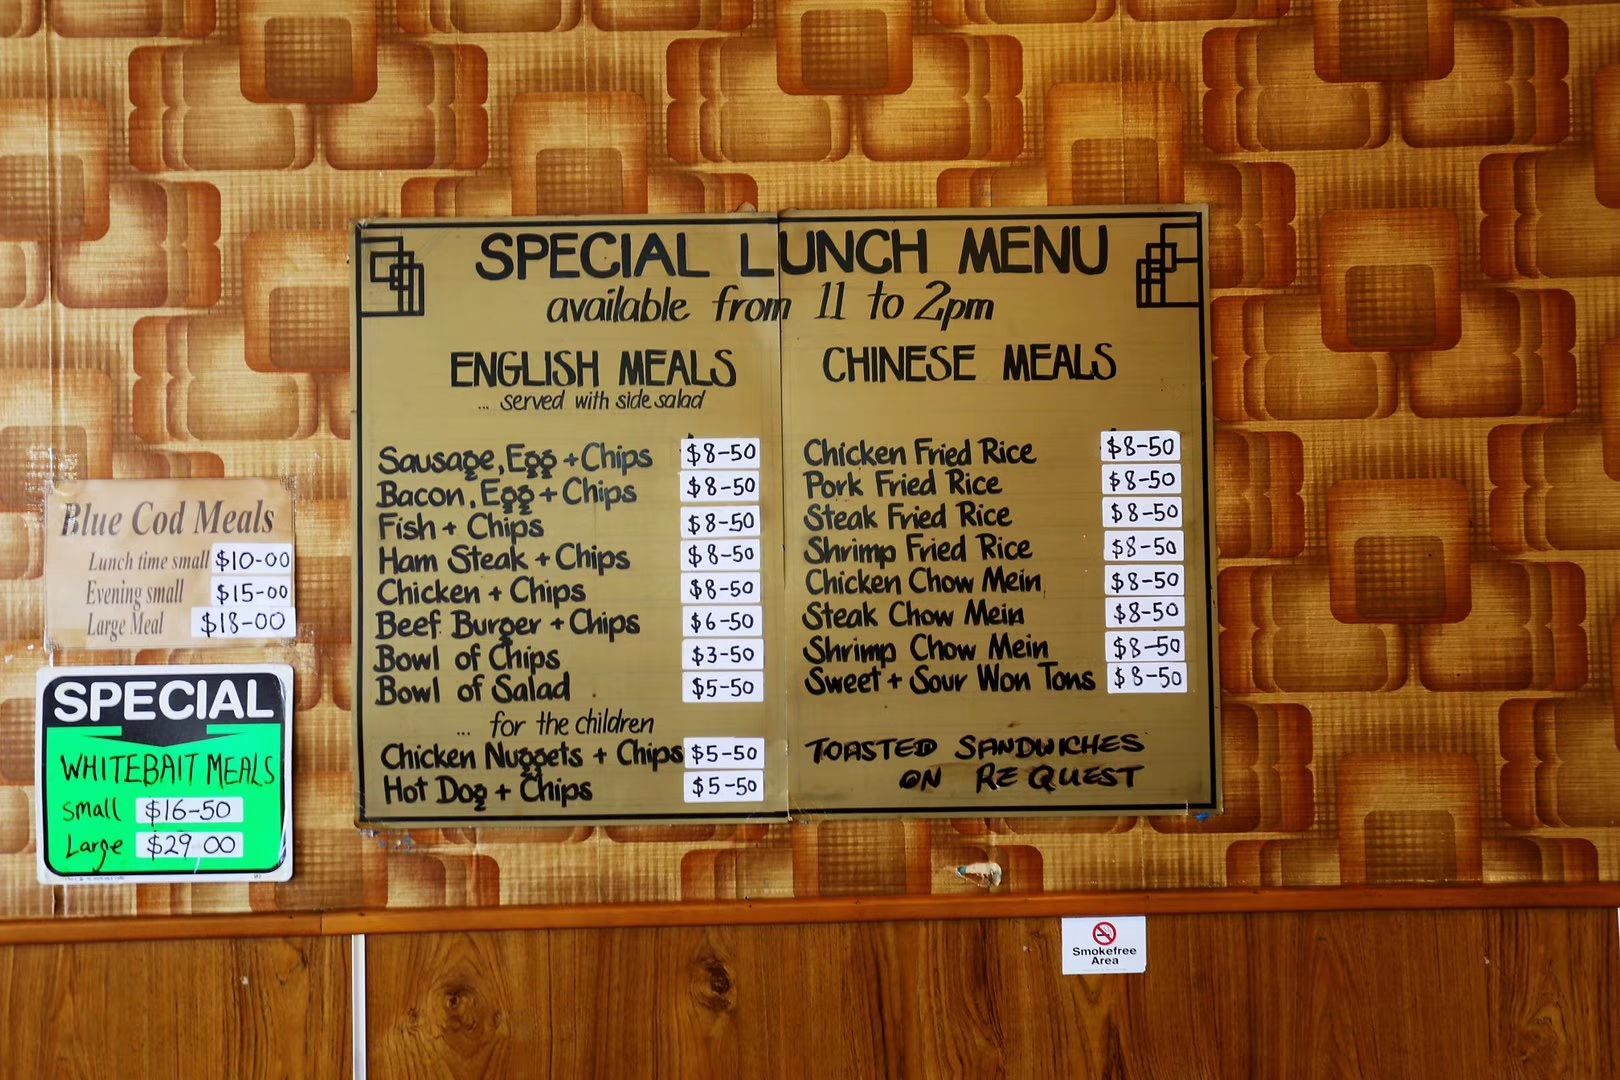 SPECIAL LUNCH MENU
available from 11 to 2pm
ENGLISH MEALS
... served with side salad
Sausage, Egg + Chips $8-50
Bacon, Egg + Chips $8-50
Fish + Chips $8-50
Ham Steak + Chips $8-50
Chicken + Chips $8-50
Beef Burger + Chips $6-50
Bowl of Chips $3-50
Bowl of Salad $5-50
... for the children
Chicken Nuggets + Chips $5-50
Hot Dog + Chips $5-50
CHINESE MEALS
Chicken Fried Rice $8-50
Pork Fried Rice $8-50
Steak Fried Rice $8-50
Shrimp Fried Rice $8-50
Chicken Chow Mein $8-50
Steak Chow Mein $8-50
Shrimp Chow Mein $8-50
Sweet + Sour Won Tons $8-50
TOASTED SANDWICHES
ON REQUEST
Blue Cod Meals
Lunch time small $10-00
Evening small $15-00
Large Meal $18-00
SPECIAL
WHITEBAIT MEALS
small $16-50
Large $29 00
Smokefree
Area